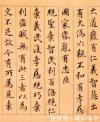 大道廢有仁義智慧出
有大偽六親不和有孝慈
國家昏亂有忠臣
絕聖棄智民利百倍絕仁
棄義民復孝慈絕巧棄
利盜賊無有此三者以為
文不足故令有所屬見素